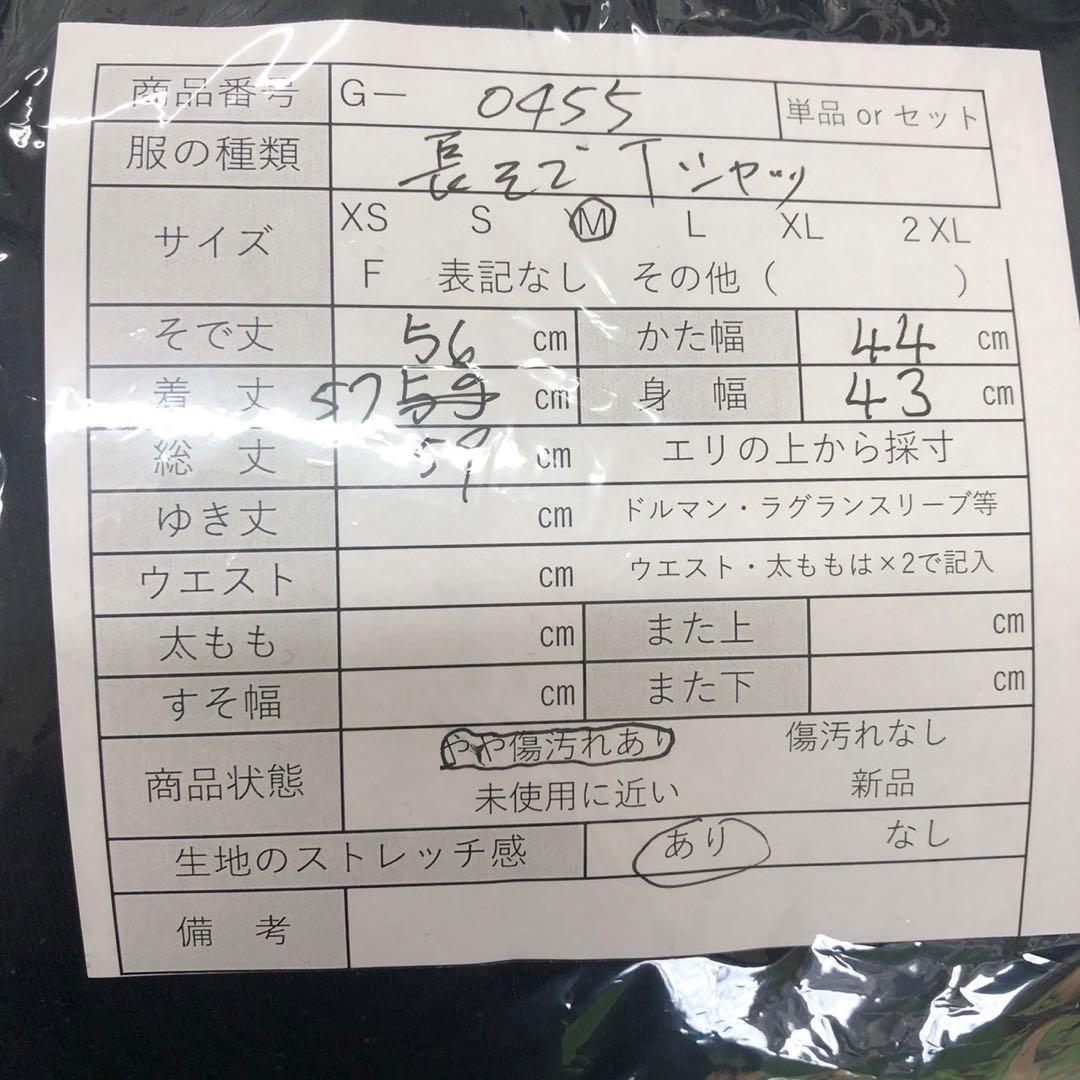 商品番号 G－ 0455 単品 or セット
服の種類 長そで Tシャツ
サイズ XS S M L XL 2XL
F 表記なし その他（ ）
そで丈 56 cm かた幅 44 cm
着 丈 57 59 cm 身 幅 43 cm
総 丈 59 cm エリの上から採寸
ゆき丈 cm ドルマン・ラグランスリーブ等
ウエスト cm ウエスト・太ももは×2で記入
太もも cm また上 cm
すそ幅 cm また下 cm
商品状態 やや傷汚れあり 傷汚れなし
未使用に近い 新品
生地のストレッチ感 あり なし
備 考